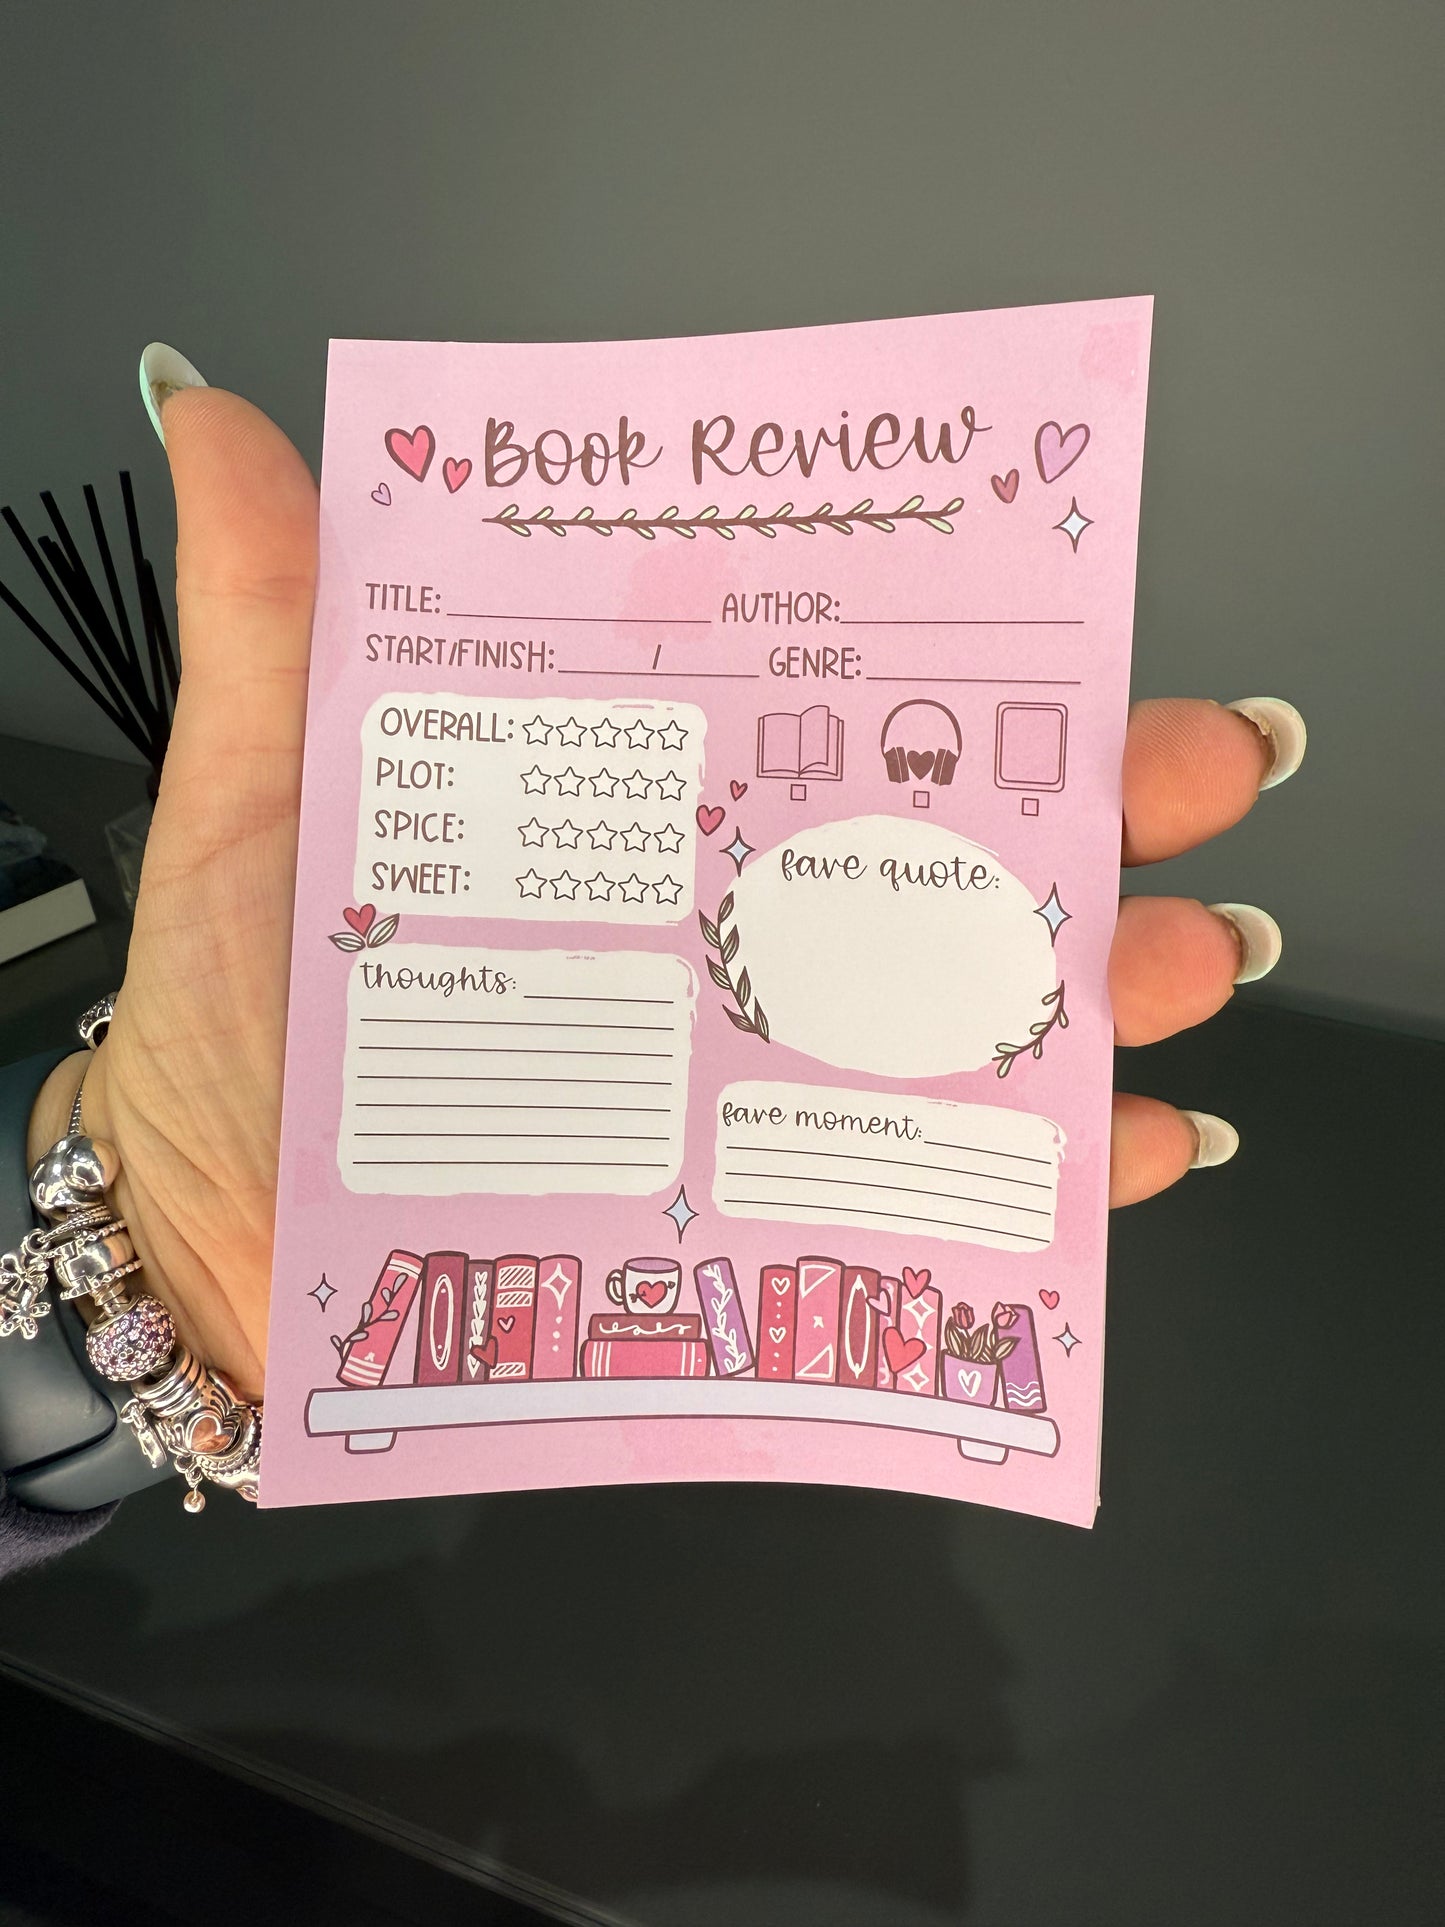 Book Review
TITLE: AUTHOR:
START/FINISH: / GENRE:
OVERALL:
PLOT:
SPICE:
SWEET:
fave quote:
thoughts:
fave moment: